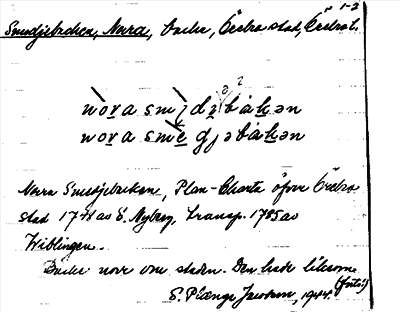 1-2
Smedjebacken, Norra, backe, Örebro stad, Örebro l.
nora smidzbakən
nora sme gjəbakən
Norra Smedjebacken, Plan-Charta öfver Örebro
stad 1778 av S. Nyberg, transp. 1785 av
Wiblingen.
Backe norr om staden. Den hade liksom
(forts!)
S. Plænge Jacobson, 1944.